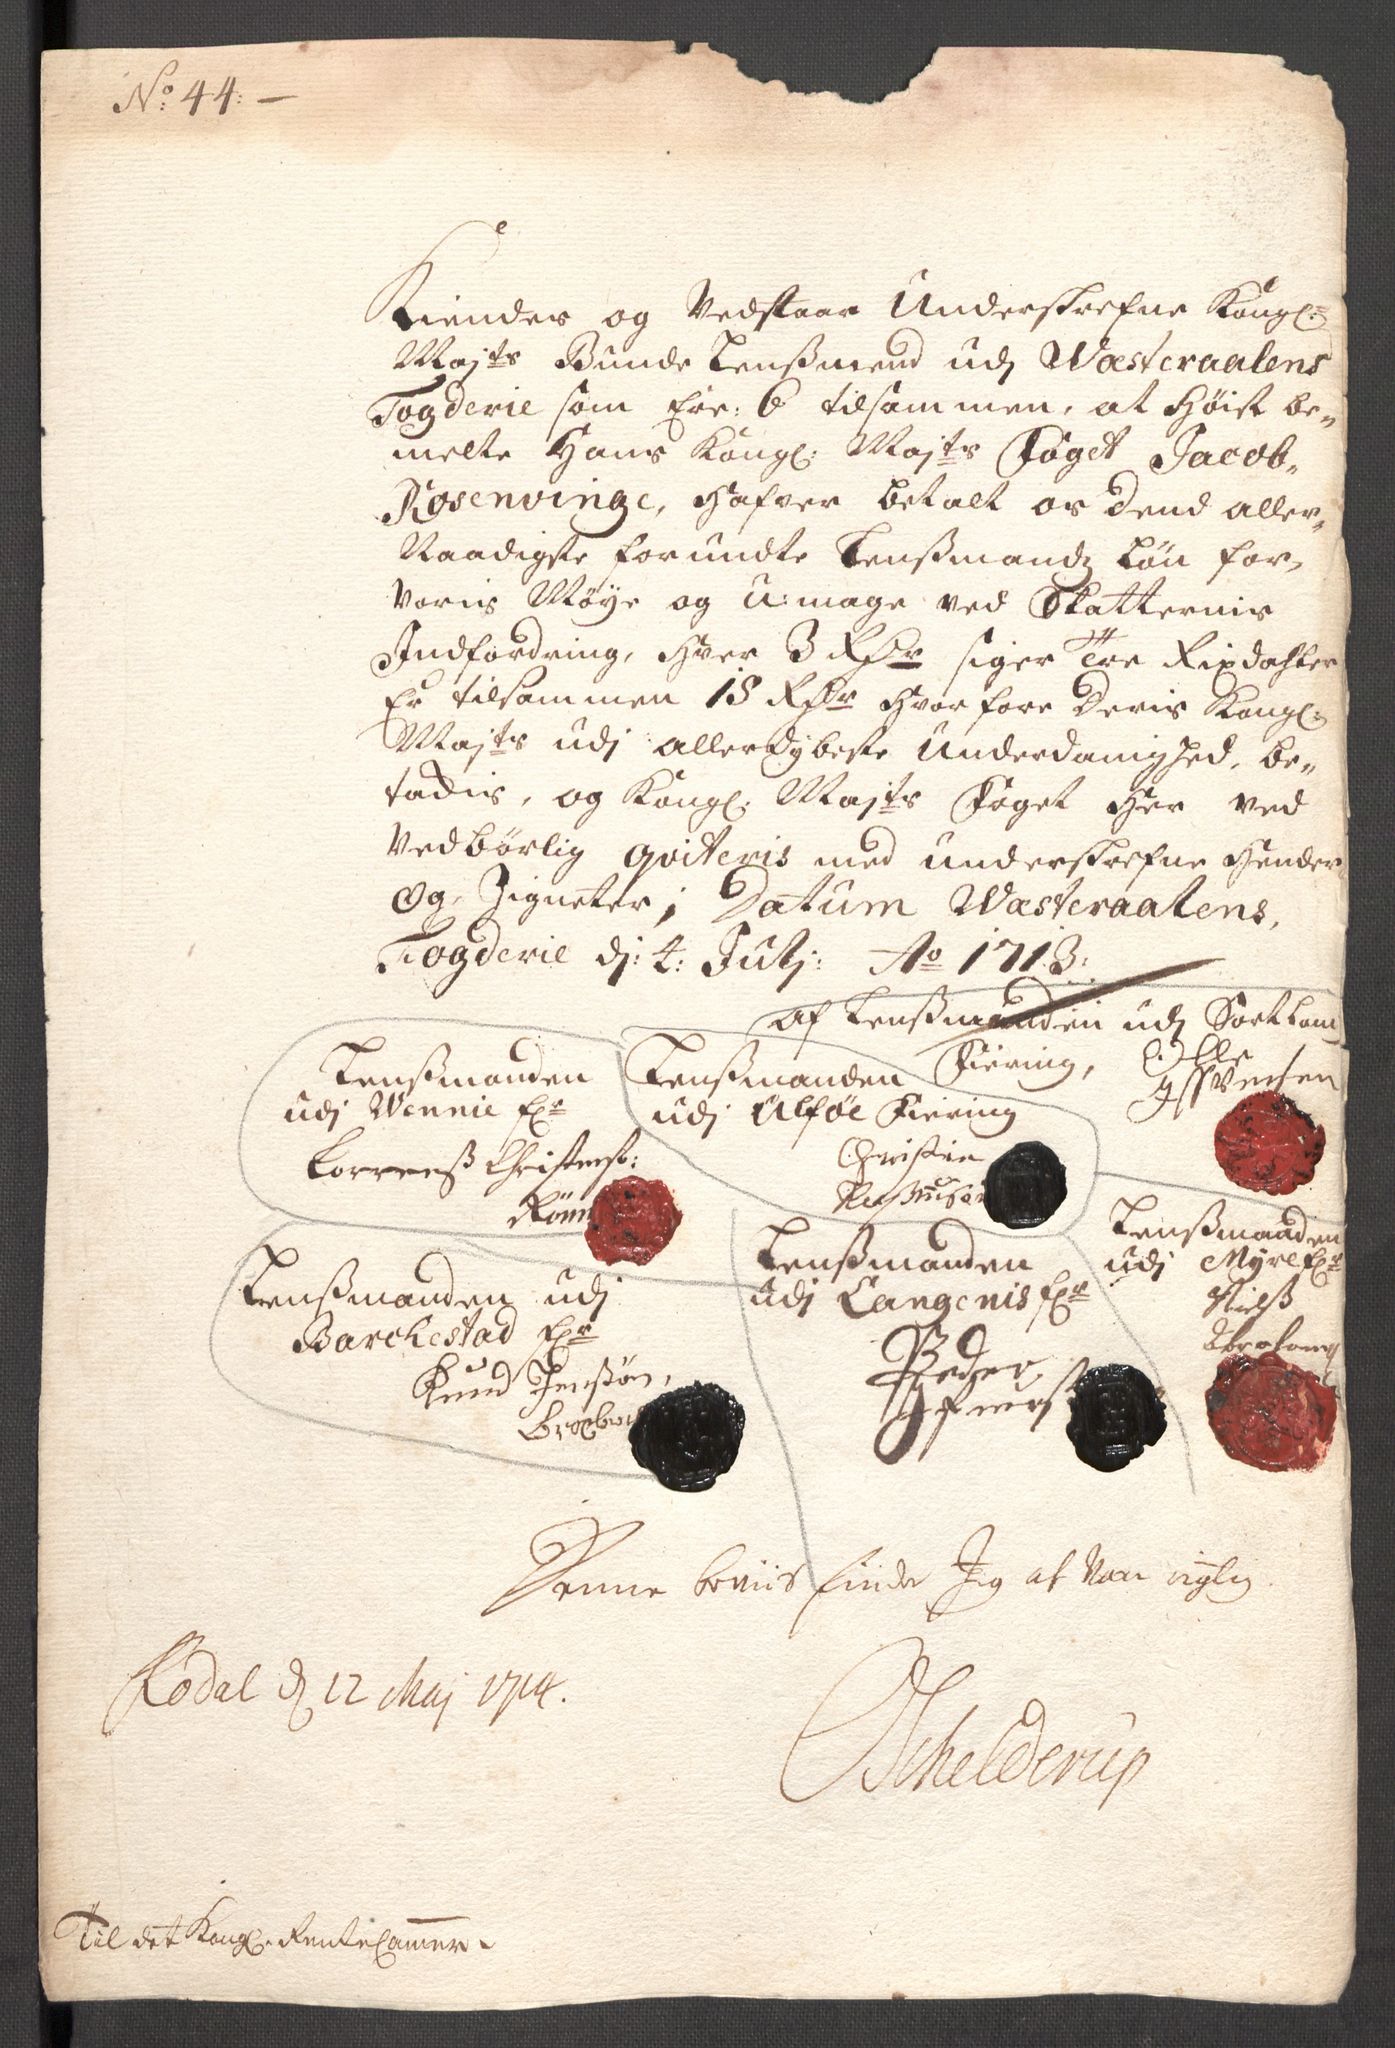 No: 44: —
Kiendes og Vedstaar Underskrefne Kongl:
Majts Bunde Lensmend udj Wæsteraalens
Fogderie som ere: 6 tilsammen, at høist be-
melte Hans Kongl: Majts Foget Jacob
Rosenvinge, hafver betalt os dend aller-
Naadigste forundte Lensmandz Løn for
voris Møye og U:mage ved Skatternis
Indfordring, hver 3 Rdr siger Tre Rixdahler
Er tilsammen 18 Rdr hvorfore Deris Kongl:
Majts udj allerdybeste Underdanighed, be-
tackis, og Kongl: Majts Foget her ved
Vedbørlig qviteris med underskrefne hender
og Zigneter; Datum Wæsteraalens,
Fogderie dj: 4: Julj: Ao 1713:
af Lensmanden udj Sortlan
Fiering, Olle
Lensmanden
udj Wennie fr
Lorrens Christens:
Lensmanden
udj Ulføe Fiering
Christen
Rasmusen
Lensmanden udj
Barckestad fr
Knud Jensøn,
Lensmanden
udj Langenis fr
Peder
Lensmanden
udj Myre fr
Niels
Denne beviis finder Jeg at være rigtig
Lødal d 12 Maj 1714.
Schelderup
Til det Kongl. RenteCammer